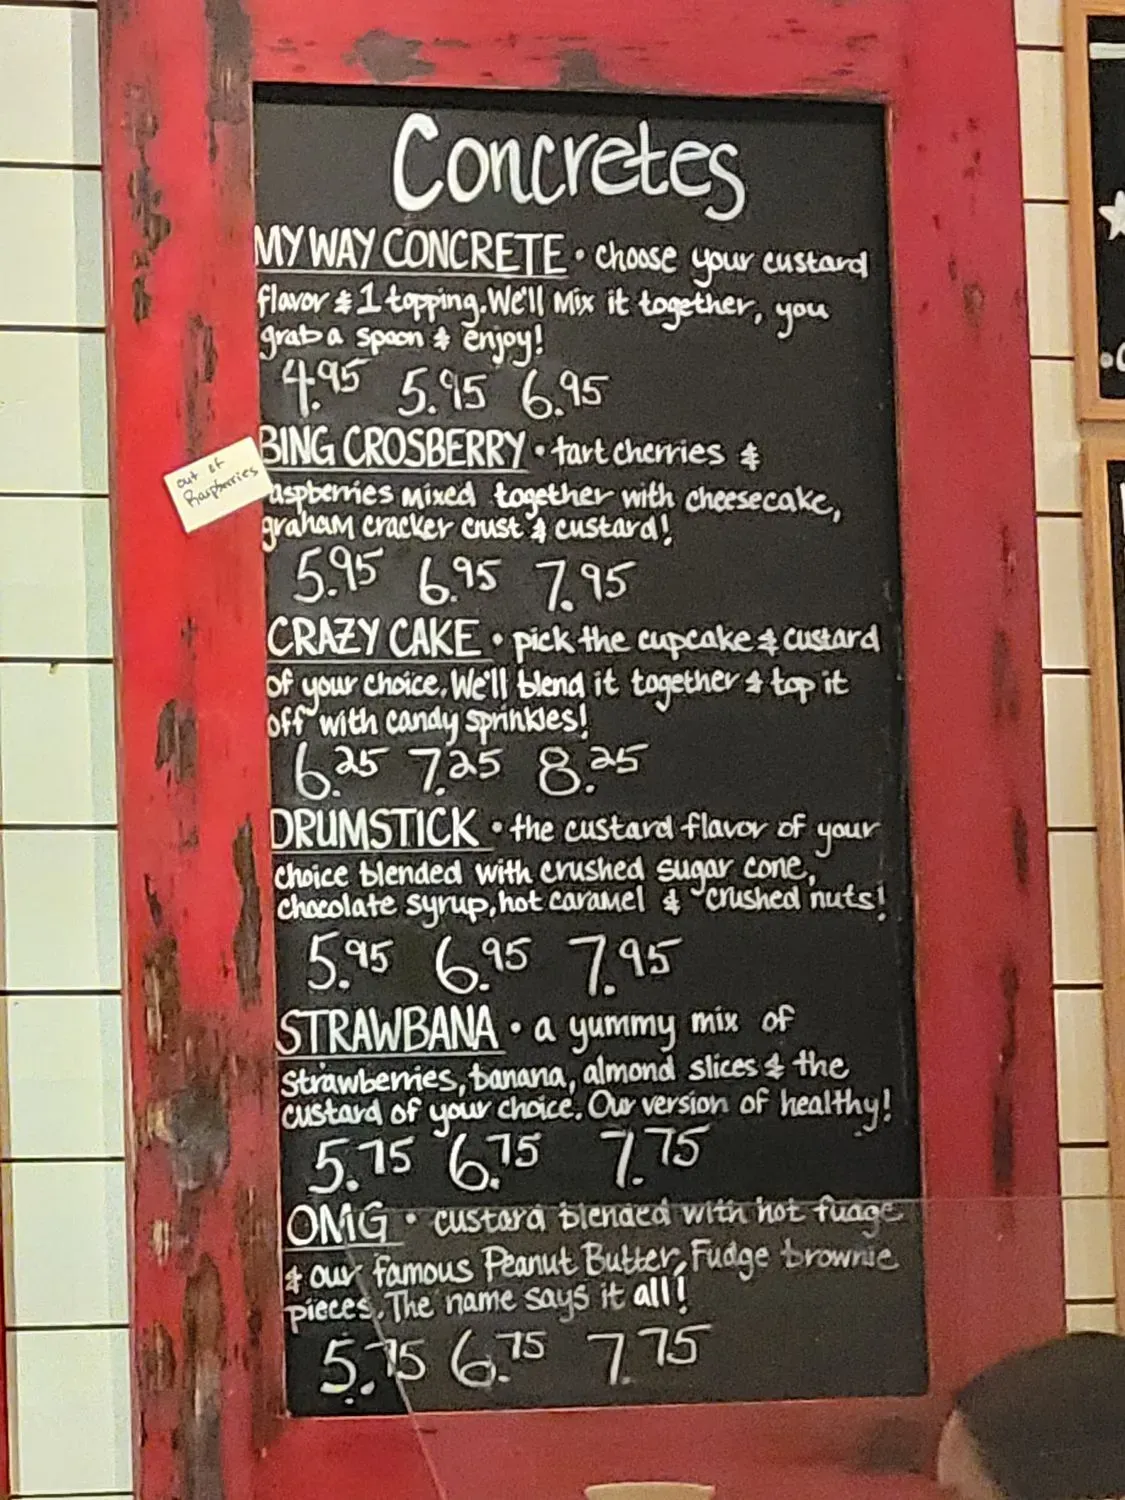 Concretes
MY WAY CONCRETE • choose your custard
flavor & 1 topping. We'll Mix it together, you
grab a spoon & enjoy!
4.95 5.95 6.95
BING CROSBERRY • tart cherries &
out of
Raspberries
aspberries mixed together with cheesecake,
graham cracker crust & custard!
5.95 6.95 7.95
CRAZY CAKE • pick the cupcake & custard
of your choice. We'll blend it together & top it
off with candy sprinkles!
6.25 7.25 8.25
DRUMSTICK • the custard flavor of your
choice blended with crushed sugar cone,
chocolate syrup, hot caramel & crushed nuts!
5.95 6.95 7.95
STRAWBANA • a yummy mix of
strawberries, banana, almond slices & the
custard of your choice. Our version of healthy!
5.75 6.75 7.75
OMG • custard blended with hot fudge
& our famous Peanut Butter, Fudge brownie
pieces. The name says it all!
5.75 6.75 7.75